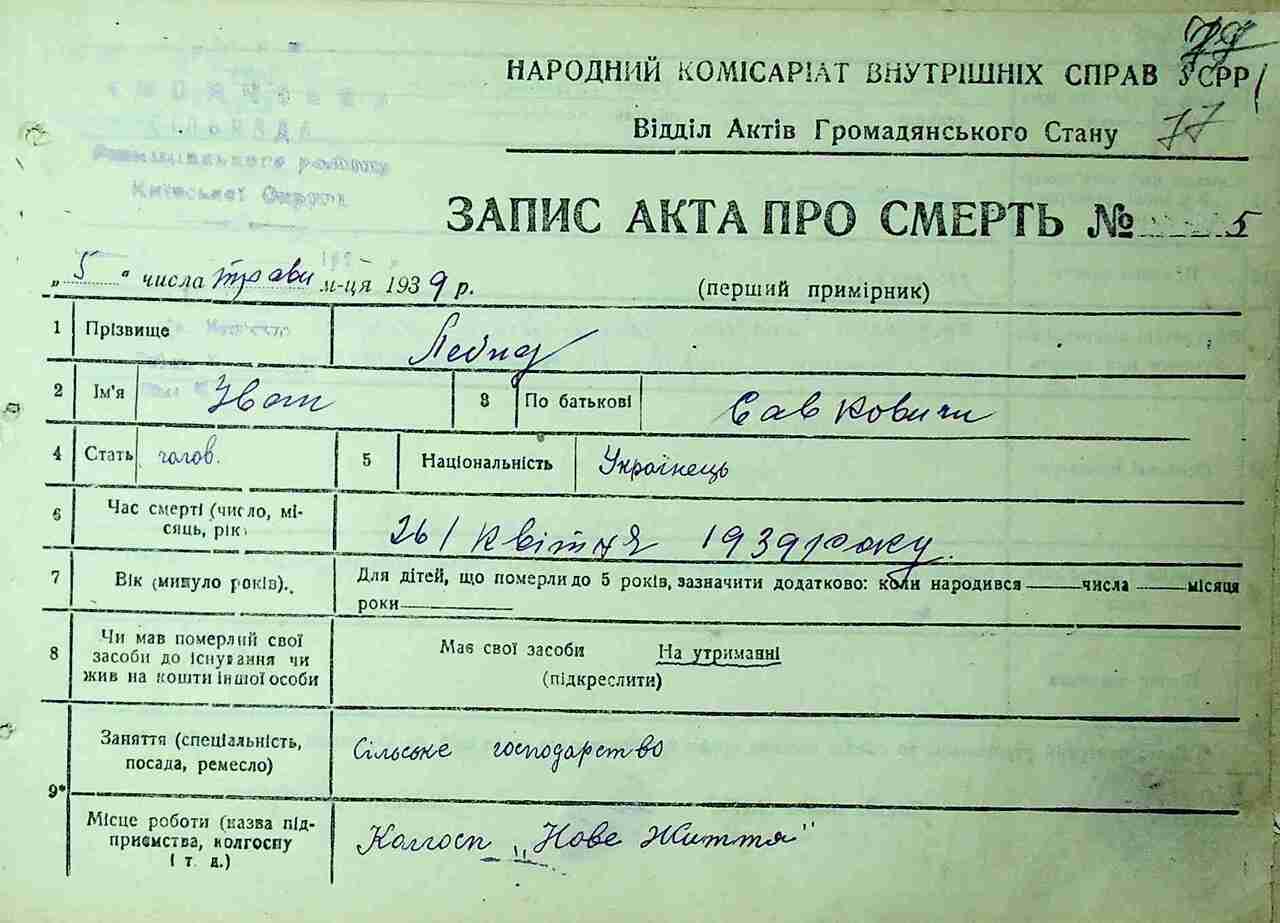 77
НАРОДНИЙ КОМІСАРІАТ ВНУТРІШНІХ СПРАВ УСРР
Відділ Актів Громадянського Стану 77
района
Київської Округи
ЗАПИС АКТА ПРО СМЕРТЬ № 5
„5“ числа трави м-ця 1939 р. (перший примірник)
1 Прізвище
2 Ім'я Іван 3 По батькові Савкович
4 Стать чолов. 5 Національність Українець
6 Час смерті (число, мі-
сяць, рік) 26/квітня 1939 року.
7 Вік (минуло років). Для дітей, що померли до 5 років, зазначити додатково: коли народився ——— числа ——— місяця
роки ———
8 Чи мав померлий свої
засоби до існування чи
жив на кошти іншої особи Має свої засоби На утриманні
(підкреслити)
9* Заняття (спеціальність,
посада, ремесло) Сільське господарство
Місце роботи (назва під-
приємства, колгоспу
і т. д.) Колгосп „Нове Життя"